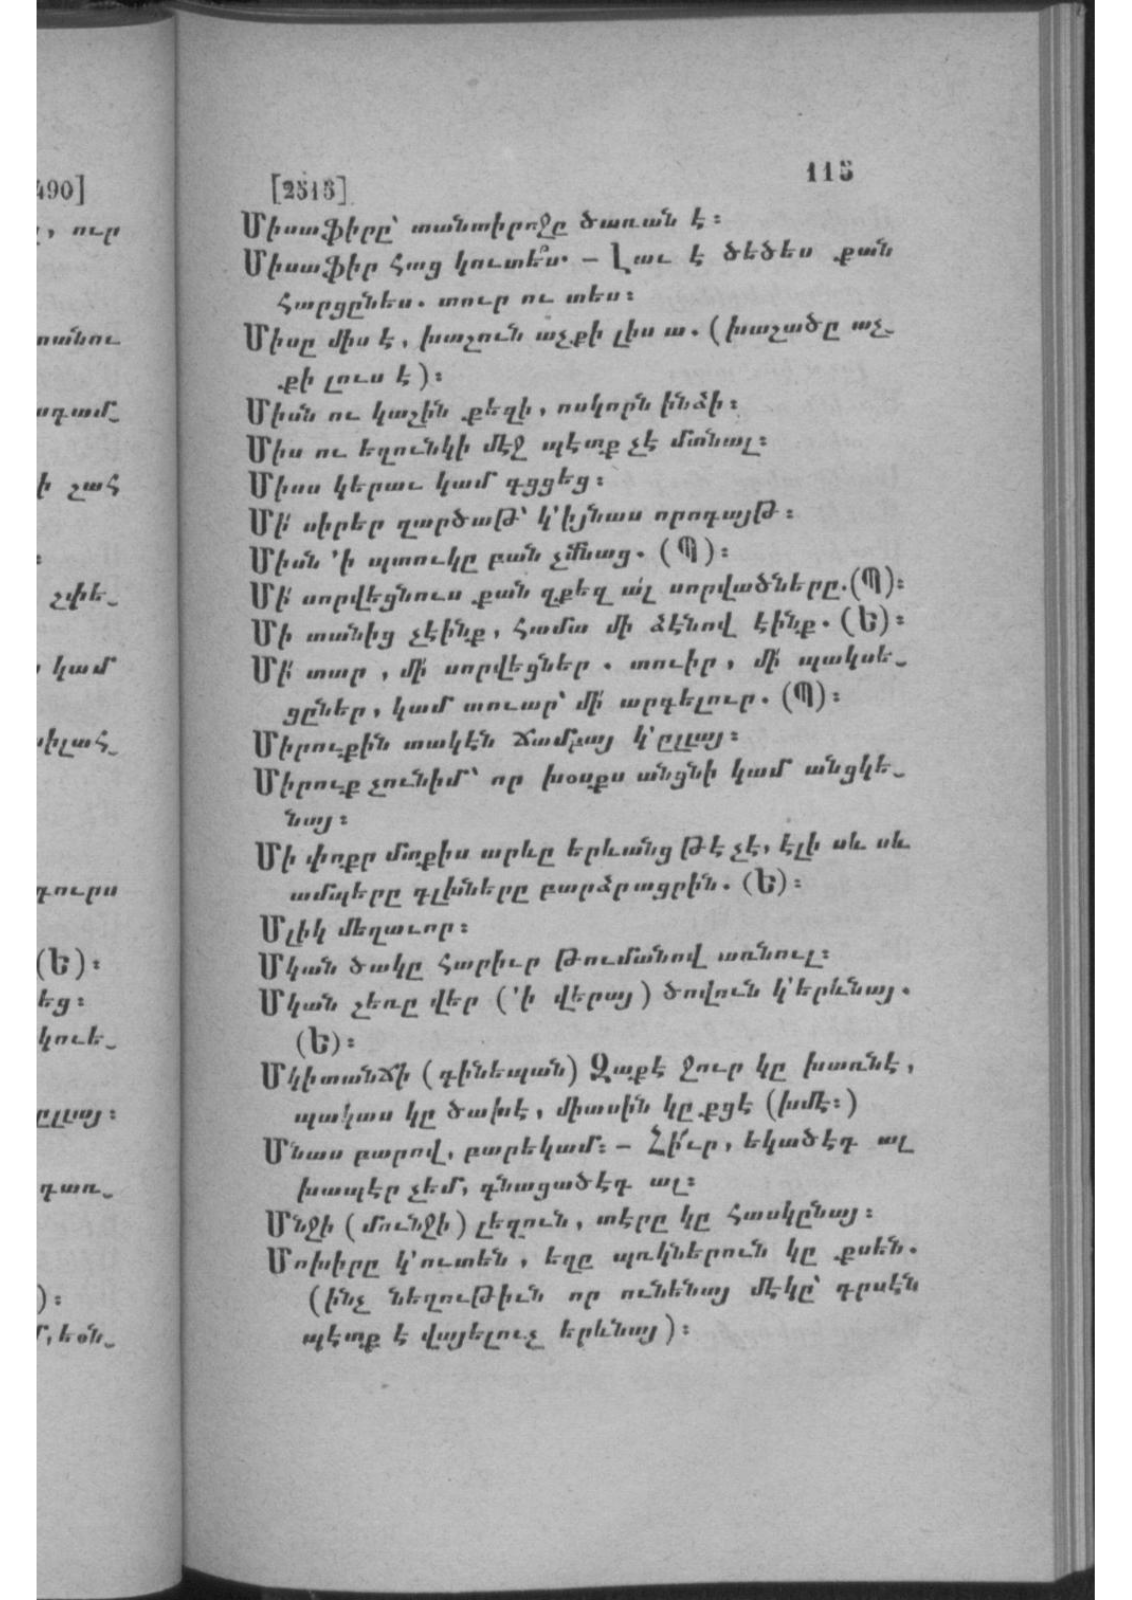 490]
, ուր
ռանու
ադամ_
ի շահ
:
չփե_
, կամ
սիլահ_
դուրս
(Ե)։
եց։
կուե_
ըլլայ։
գառ_
)։
մ, եօն_
[2515] 115
Միսաֆիրը՝ տանտիրոջը ծառան է։
Միսաֆիր հաց կուտե՞ս. — Լաւ է ծեծես քան
հարցընես. տուր ու տես։
Միսը միս է, խաշուն աչքի լիս ա. (խաշածը աչ_
քի լուս է)։
Միսն ու կաշին քեզի, ոսկորն ինձի։
Միս ու եղունկի մէջ պէտք չէ մտնալ։
Միսս կերաւ կամ գցցեց։
Մի՛ սիրեր զարծաթ՝ կ՚իյնաս որոգայթ։
Միսն ՚ի պտուկը բան չմնաց. (Պ)։
Մի՛ սորվեցնուս քան զքեզ ա՛լ սորվածները.(Պ)։
Մի տանից չէինք, համա մի ձէնով էինք. (Ե)։
Մի՛ տար, մի՛ սորվեցներ. տուիր, մի՛ պակսե_
ցըներ, կամ տուար՝ մի՛ արգելուր. (Պ)։
Միրուքին տակէն ճամբայ կ՚ըլլայ։
Միրուք չունիմ՝ որ խօսքս անցնի կամ անցկե_
նայ։
Մի փոքր մտքիս արևը երևանց թէ չէ, էլի սև սև
ամպերը գլխները բարձրացրին. (Ե)։
Մլիկ մեղաւոր։
Մկան ծակը հարիւր թումանով առնուլ։
Մկան չեռը վեր (՚ի վերայ) ծովուն կ՚երևնայ.
(Ե)։
Մկիտանճի (գինեպան) Զաքէ ջուր կը խառնէ,
պակաս կը ծախէ, միասին կը քցէ (խմէ։)
Մնաս բարով, բարեկամ։ — Հի՛ւր, եկածէդ ալ
խապէր չեմ, գնացածէդ ալ։
Մնջի (մունջի) լեզուն, տէրը կը հասկընայ։
Մոխիրը կ՚ուտեն, եղը պռկներուն կը քսեն.
(ինչ նեղութիւն որ ունենայ մէկը՝ դրսէն
պէտք է վայելուչ երևնայ)։